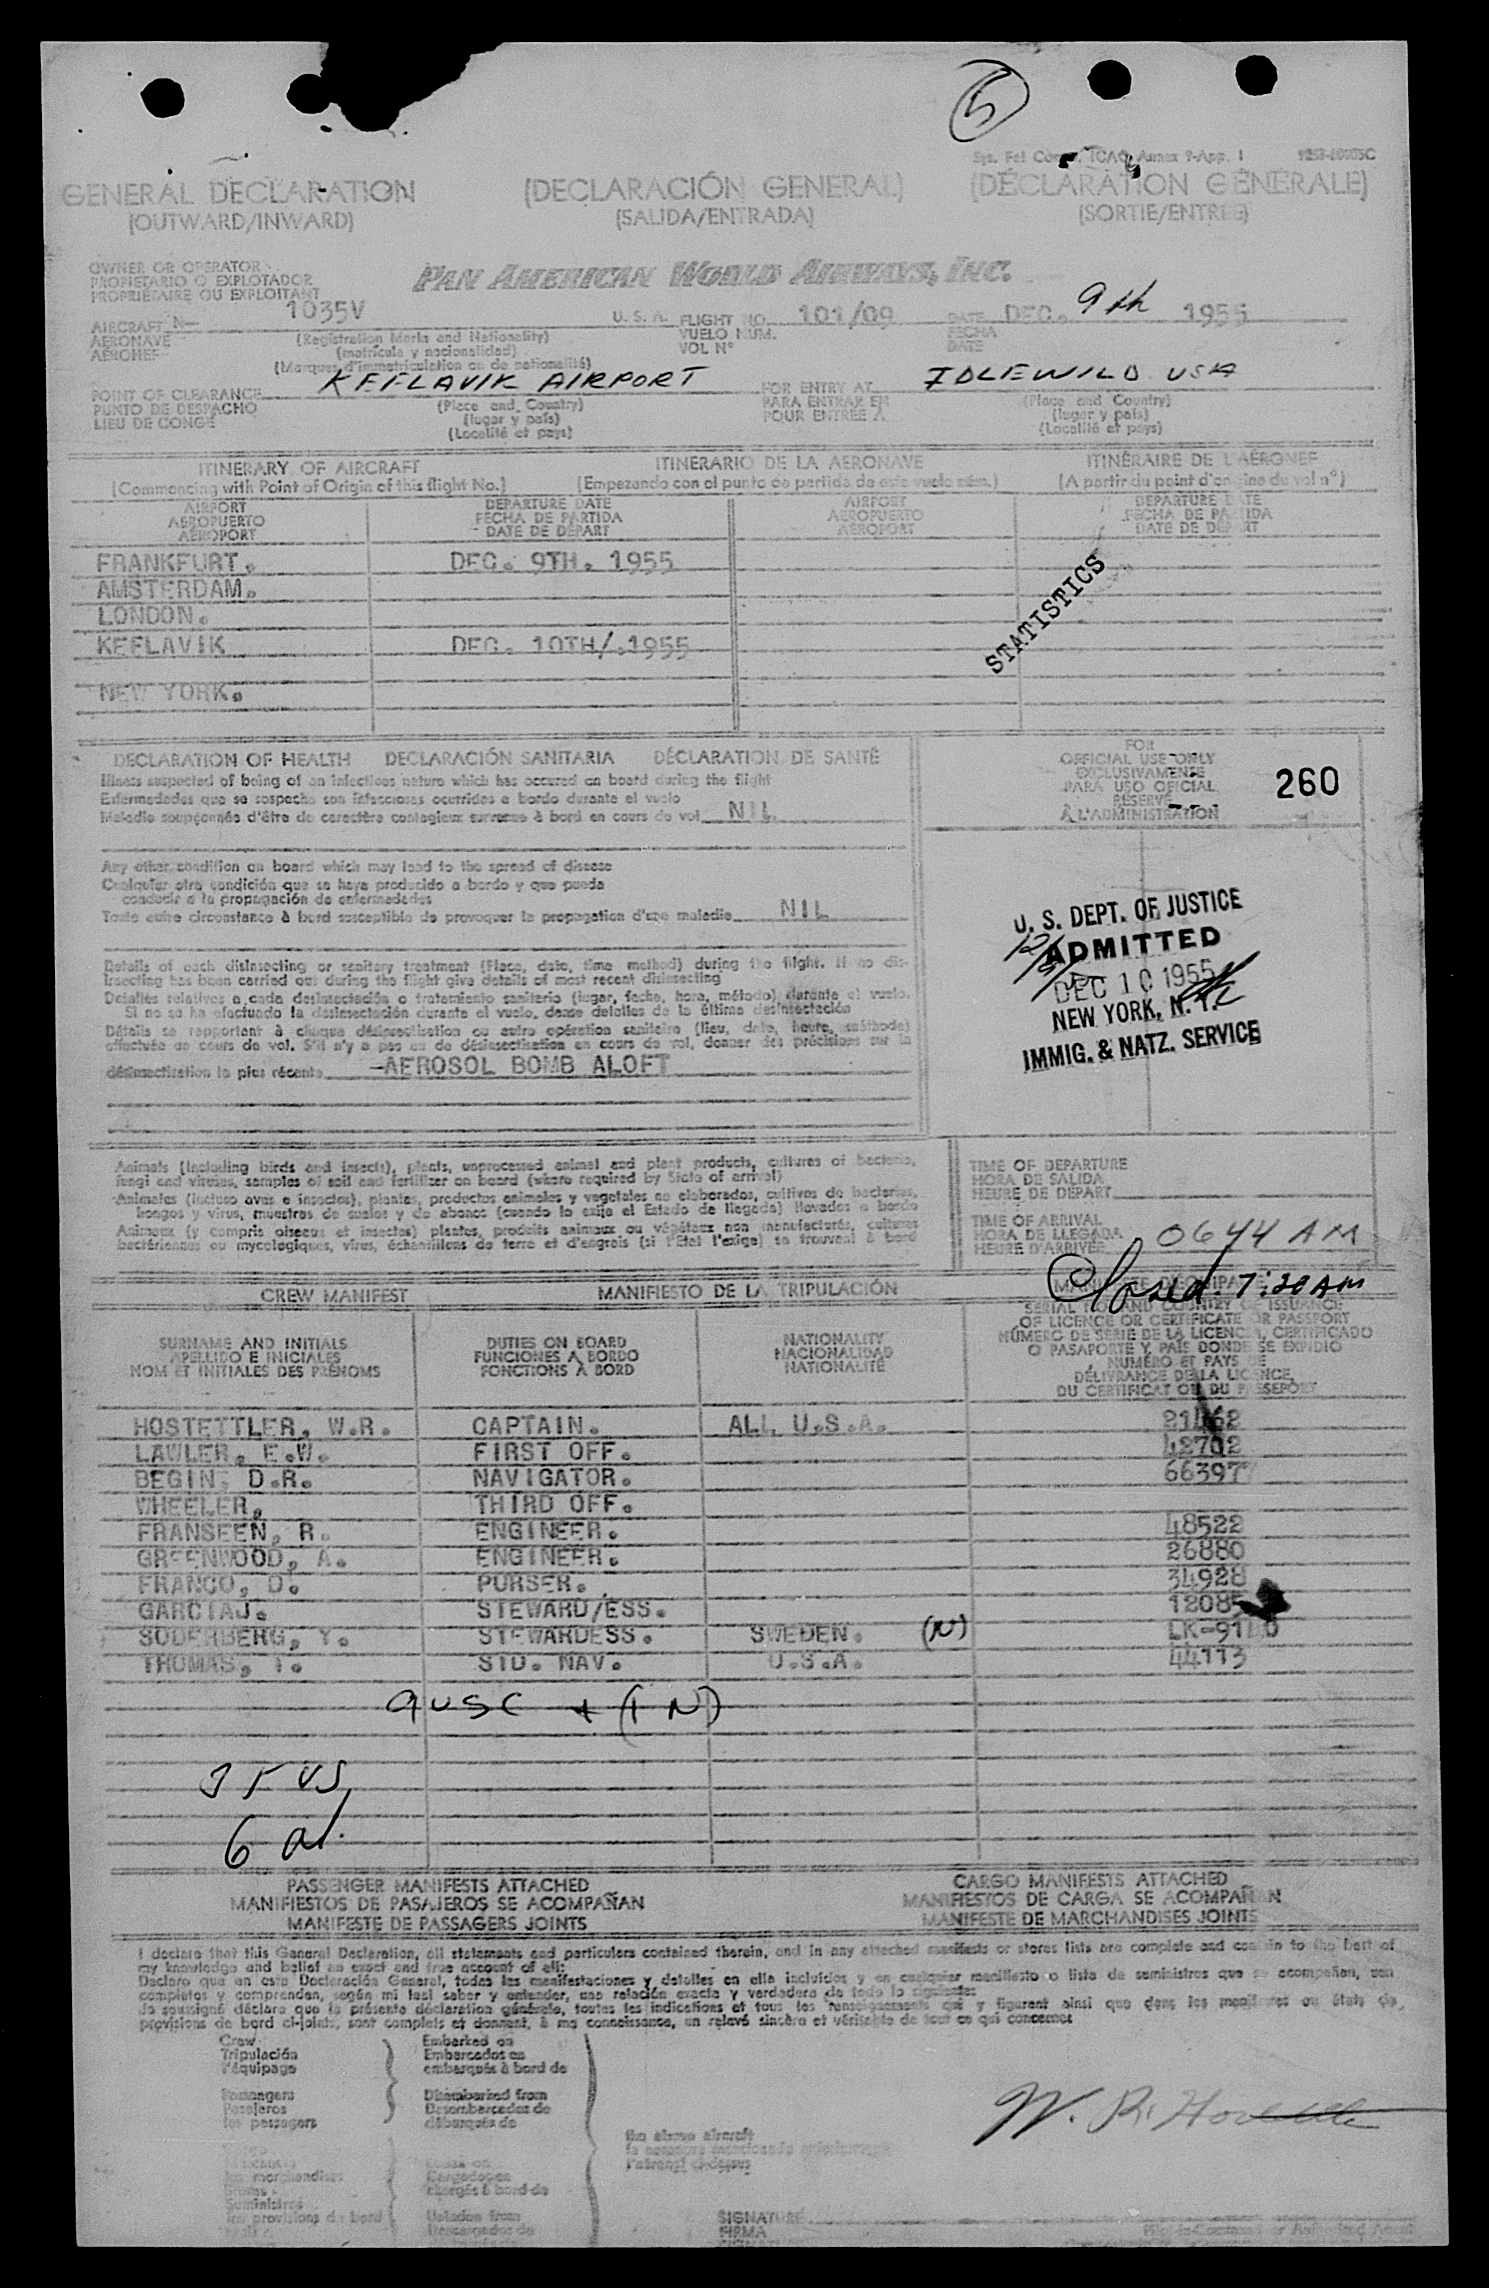 5
GENERAL DECLARATION (DECLARACIÓN GENERAL) (DÉCLARATION GÉNÉRALE)
(OUTWARD/INWARD) (SALIDA/ENTRADA) (SORTIE/ENTRÉE)
OWNER OR OPERATOR
PROPIETARIO O EXPLOTADOR
PROPRIÉTAIRE OU EXPLOITANT
PAN AMERICAN WORLD AIRWAYS, INC.
AIRCRAFT N- 1035V U. S. A. FLIGHT NO. 101/09 DATE DEC. 9th 1955
AERONAVE (Registration Marks and Nationality) VUELO NUM. FECHA
AÉRONEF (matrícula y nacionalidad) VOL Nº DATE
(Marques d'immatriculation ou de nationalité)
POINT OF CLEARANCE KEFLAVIK AIRPORT FOR ENTRY AT IDLEWILD USA
PUNTO DE DESPACHO (Place and Country) PARA ENTRAR EN (Place and Country)
LIEU DE CONGÉ (lugar y país) POUR ENTRÉE À (lugar y país)
(Localité et pays) (Localité et pays)
ITINERARY OF AIRCRAFT ITINERARIO DE LA AERONAVE ITINÉRAIRE DE L'AÉRONEF
(Commencing with Point of Origin of this flight No.) (Empezando con el punto de partida de este vuelo núm.) (A partir du point d'origine du vol nº)
AIRPORT DEPARTURE DATE AIRPORT DEPARTURE DATE
AEROPUERTO FECHA DE PARTIDA AEROPUERTO FECHA DE PARTIDA
AÉROPORT DATE DE DÉPART AÉROPORT DATE DE DÉPART
FRANKFURT. DEC. 9TH. 1955
AMSTERDAM.
LONDON.
KEFLAVIK DEC. 10TH/.1955
NEW YORK.
STATISTICS
DECLARATION OF HEALTH DECLARACIÓN SANITARIA DÉCLARATION DE SANTÉ
Illness suspected of being of an infectious nature which has occured on board during the flight
Enfermedades que se sospecha son infecciosas ocurridas a bordo durante el vuelo
Maladie soupçonnée d'être de caractère contagieux survenue à bord en cours de vol NIL
FOR
OFFICIAL USE ONLY
EXCLUSIVAMENTE
PARA USO OFICIAL
RÉSERVÉ
À L'ADMINISTRATION
260
Any other condition on board which may lead to the spread of disease
Cualquier otra condición que se haya producido a bordo y que pueda
conducir a la propagación de enfermedades
Toute autre circonstance à bord susceptible de provoquer la propagation d'une maladie NIL
U. S. DEPT. OF JUSTICE
ADMITTED
DEC 10 1955
NEW YORK, N. Y.
IMMIG. & NATZ. SERVICE
Details of each disinsecting or sanitary treatment (Place, date, time method) during the flight. If no dis-
insecting has been carried out during the flight give details of most recent disinsecting
Detalles relativos a cada desinsectación o tratamiento sanitario (lugar, fecha, hora, método) durante el vuelo.
Si no se ha efectuado la desinsectación durante el vuelo, dense detalles de la última desinsectación
Détails se rapportant à chaque désinsectisation ou autre opération sanitaire (lieu, date, heure, méthode)
effectuée au cours de vol. S'il n'y a pas eu de désinsectisation en cours de vol, donner des précisions sur la
désinsectisation la plus récente -AEROSOL BOMB ALOFT
Animals (including birds and insects), plants, unprocessed animal and plant products, cultures of bacteria,
fungi and viruses, samples of soil and fertilizer on board (where required by State of arrival)
Animales (incluso aves e insectos), plantas, productos animales y vegetales no elaborados, cultivos de bacterias,
hongos y virus, muestras de suelos y de abonos (cuando lo exija el Estado de llegada) llevados a bordo
Animaux (y compris oiseaux et insectes) plantes, produits animaux ou végétaux non manufacturés, cultures
bactériennes ou mycologiques, virus, échantillons de terre et d'engrais (si l'État l'exige) se trouvant à bord
TIME OF DEPARTURE
HORA DE SALIDA
HEURE DE DÉPART
TIME OF ARRIVAL
HORA DE LLEGADA 0644 AM
HEURE D'ARRIVÉE
Closed. 7:20 AM
CREW MANIFEST MANIFIESTO DE LA TRIPULACIÓN
SURNAME AND INITIALS DUTIES ON BOARD NATIONALITY SERIAL NO. AND COUNTRY OF ISSUANCE
APELLIDO E INICIALES FUNCIONES A BORDO NACIONALIDAD OF LICENCE OR CERTIFICATE OR PASSPORT
NOM ET INITIALES DES PRÉNOMS FONCTIONS À BORD NATIONALITÉ NÚMERO DE SERIE DE LA LICENCIA, CERTIFICADO
O PASAPORTE Y PAÍS DONDE SE EXPIDIO
NUMÉRO ET PAYS DE
DÉLIVRANCE DE LA LICENCE,
DU CERTIFICAT OU DU PASSEPORT
HOSTETTLER, W.R. CAPTAIN. ALL U.S.A.
LAWLER, E.W. FIRST OFF. 42702
BEGIN, D.R. NAVIGATOR. 663977
WHEELER, THIRD OFF.
FRANSEEN, R. ENGINEER. 48522
GREENWOOD, A. ENGINEER. 26880
FRANCO, D. PURSER. 34928
GARCIAJ. STEWARD/ESS.
SODERBERG, Y. STEWARDESS. SWEDEN. (N)
THOMAS, T. STD. NAV. U.S.A. 44113
9 USC + (1 N)
6 al.
PASSENGER MANIFESTS ATTACHED CARGO MANIFESTS ATTACHED
MANIFIESTOS DE PASAJEROS SE ACOMPAÑAN MANIFIESTOS DE CARGA SE ACOMPAÑAN
MANIFESTE DE PASSAGERS JOINTS MANIFESTE DE MARCHANDISES JOINTS
I declare that this General Declaration, all statements and particulars contained therein, and in any attached manifests or stores lists are complete and contain to the best of
my knowledge and belief an exact and true account of all:
Declaro que en esta Declaración General, todas las manifestaciones y detalles en ella incluidos y en cualquier manifiesto o lista de suministros que se acompañan, son
completos y comprenden, según mi leal saber y entender, una relación exacta y verdadera de todo lo siguiente:
Je soussigné déclare que la présente déclaration générale, toutes les indications et tous les renseignements qui y figurent ainsi que dans les manifestes ou états de
provisions de bord ci-joints, sont complets et donnent, à ma connaissance, un relevé sincère et véritable de tout ce qui concerne:
Crew Embarked on
Tripulación Embarcados en
l'équipage embarqués à bord de
Passengers Disembarked from
Pasajeros Desembarcados de
les passagers débarqués de
the above aircraft
les marchandises Cargados en
chargés à bord de
Suministros
les provisions de bord Unladen from
Descargados de
W. R. Hostettler
SIGNATURE
FIRMA